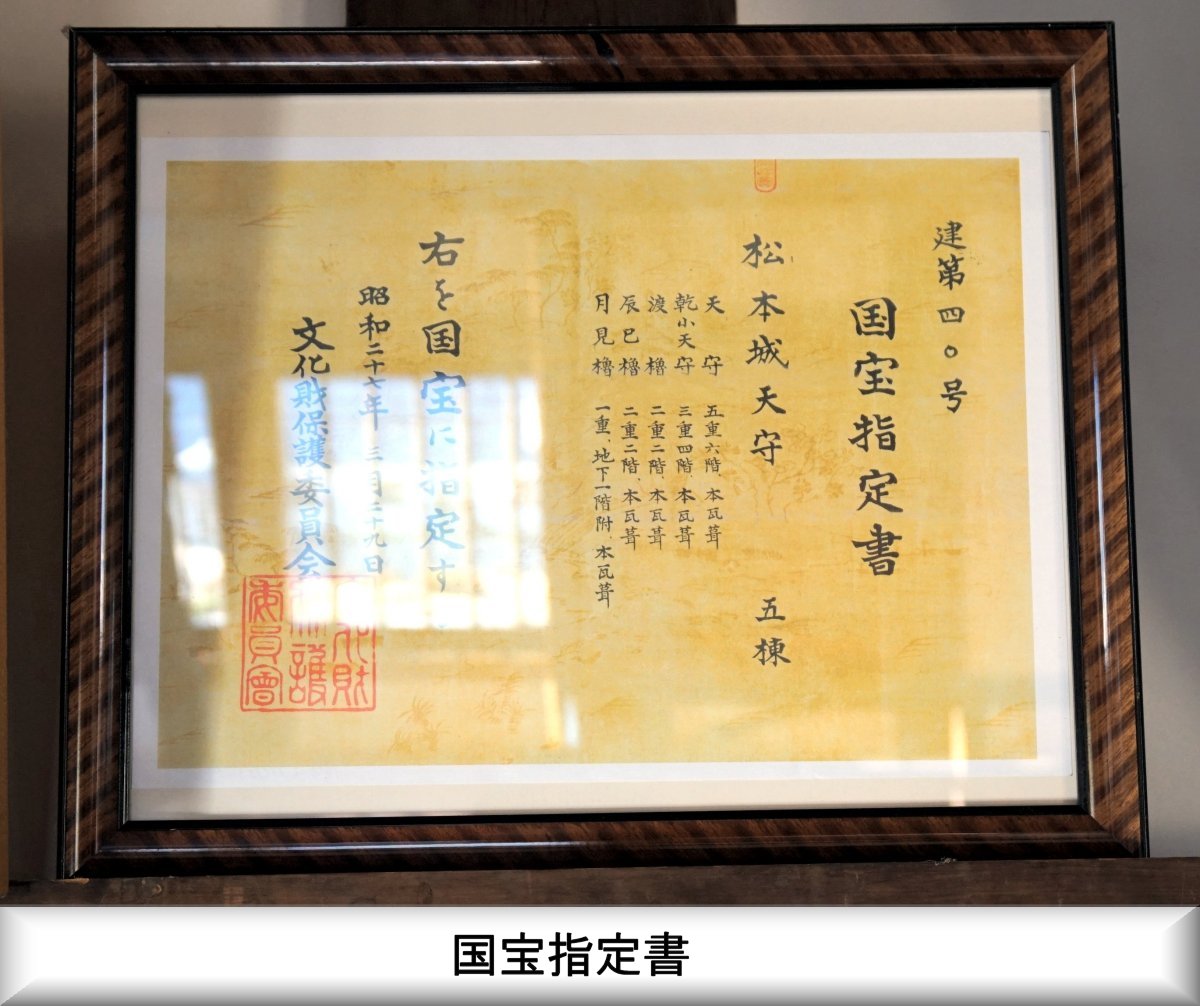 建第四〇号
国宝指定書
松本城天守 五棟
天守 五重六階、本瓦葺
乾小天守 三重四階、本瓦葺
渡櫓 二重二階、本瓦葺
辰巳櫓 二重二階、本瓦葺
月見櫓 一重、地下一階附、本瓦葺
右を国宝に指定す
昭和二十七年 三月二十九日
文化財保護委員会
国宝指定書